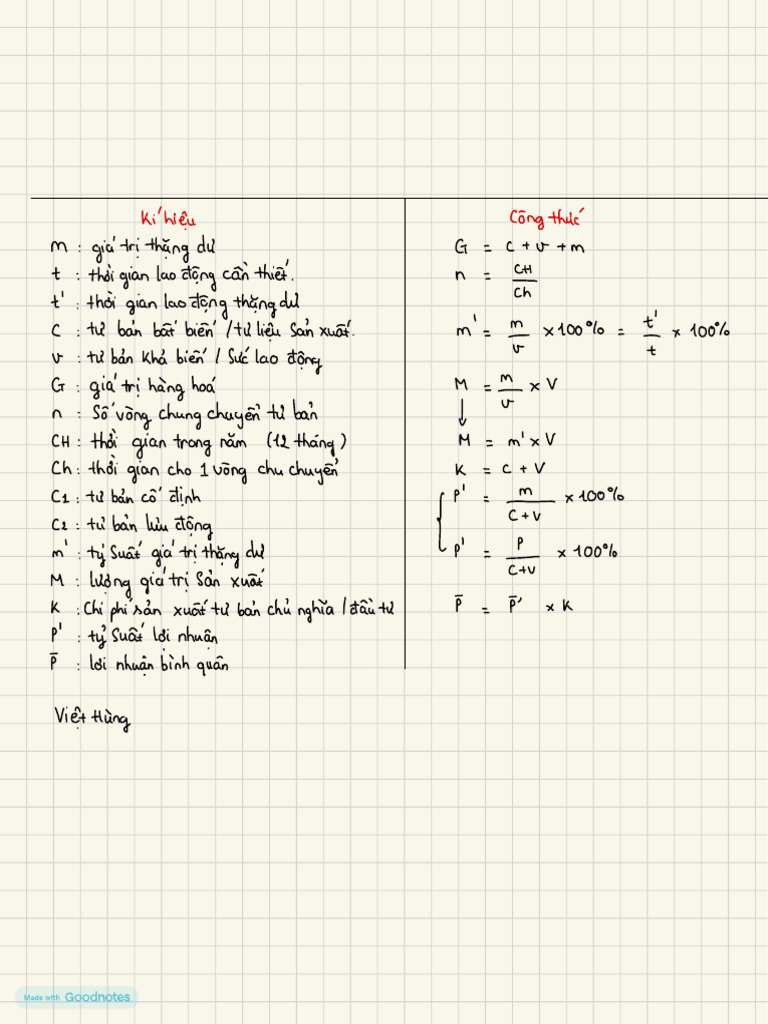 Kí hiệu
m : giá trị thặng dư
t : thời gian lao động cần thiết.
t' : thời gian lao động thặng dư
C : tư bản bất biến / tư liệu sản xuất.
v : tư bản khả biến / Sức lao động
G : giá trị hàng hoá
n : Số vòng chung chuyển tư bản
CH : thời gian trong năm (12 tháng)
Ch : thời gian cho 1 vòng chu chuyển
C1 : tư bản cố định
C2 : tư bản lưu động
m' : tỷ suất giá trị thặng dư
M : lượng giá trị sản xuất
K : Chi phí sản xuất tư bản chủ nghĩa / đầu tư
P' : tỷ suất lợi nhuận
P̄ : lợi nhuận bình quân
Việt Hùng
Công thức
G = c + v + m
n = CH / Ch
m' = m / v × 100% = t' / t × 100%
M = m / v × V
↓
M = m' × V
K = C + V
P' = m / C+V × 100%
P' = P / C+V × 100%
P̄ = P̄' × K
Made with Goodnotes